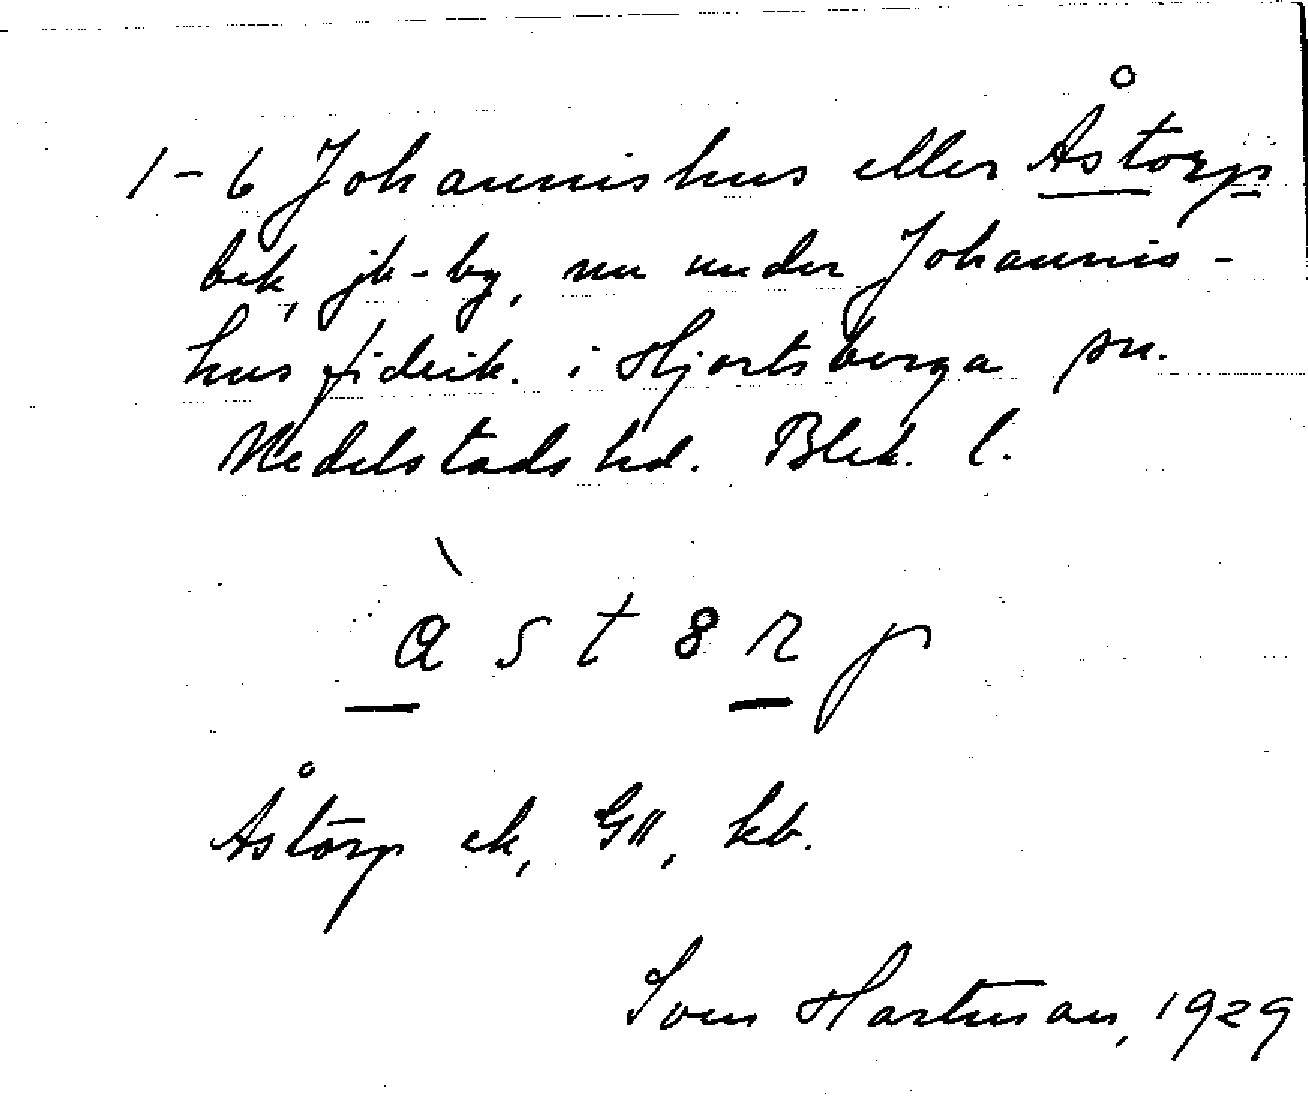 1-6 Johannishus eller Åstorp
bek, jb-by, nu under Johannis-
hus fideik. i Hjortsberga sn.
Medelstads hd. Blek. l.
àst8rp
Åstorp ek, GII, kb.
Sven Hartman, 1929